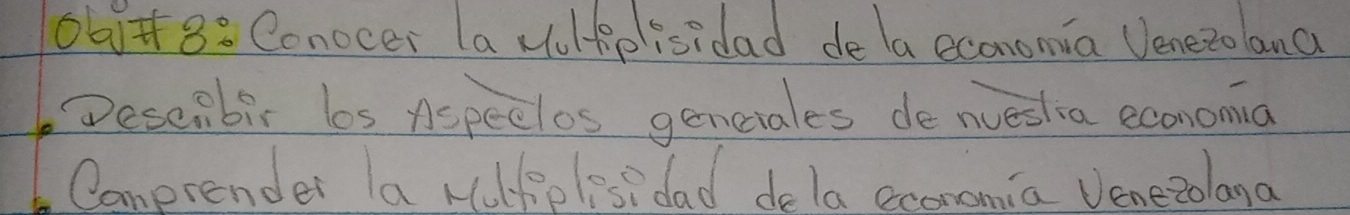 Obj#8: Conocer la Multiplisidad de la economía Venezolana
Describir los Aspectos generales de nuestra economía
Comprender la Multiplisidad de la economía Venezolana